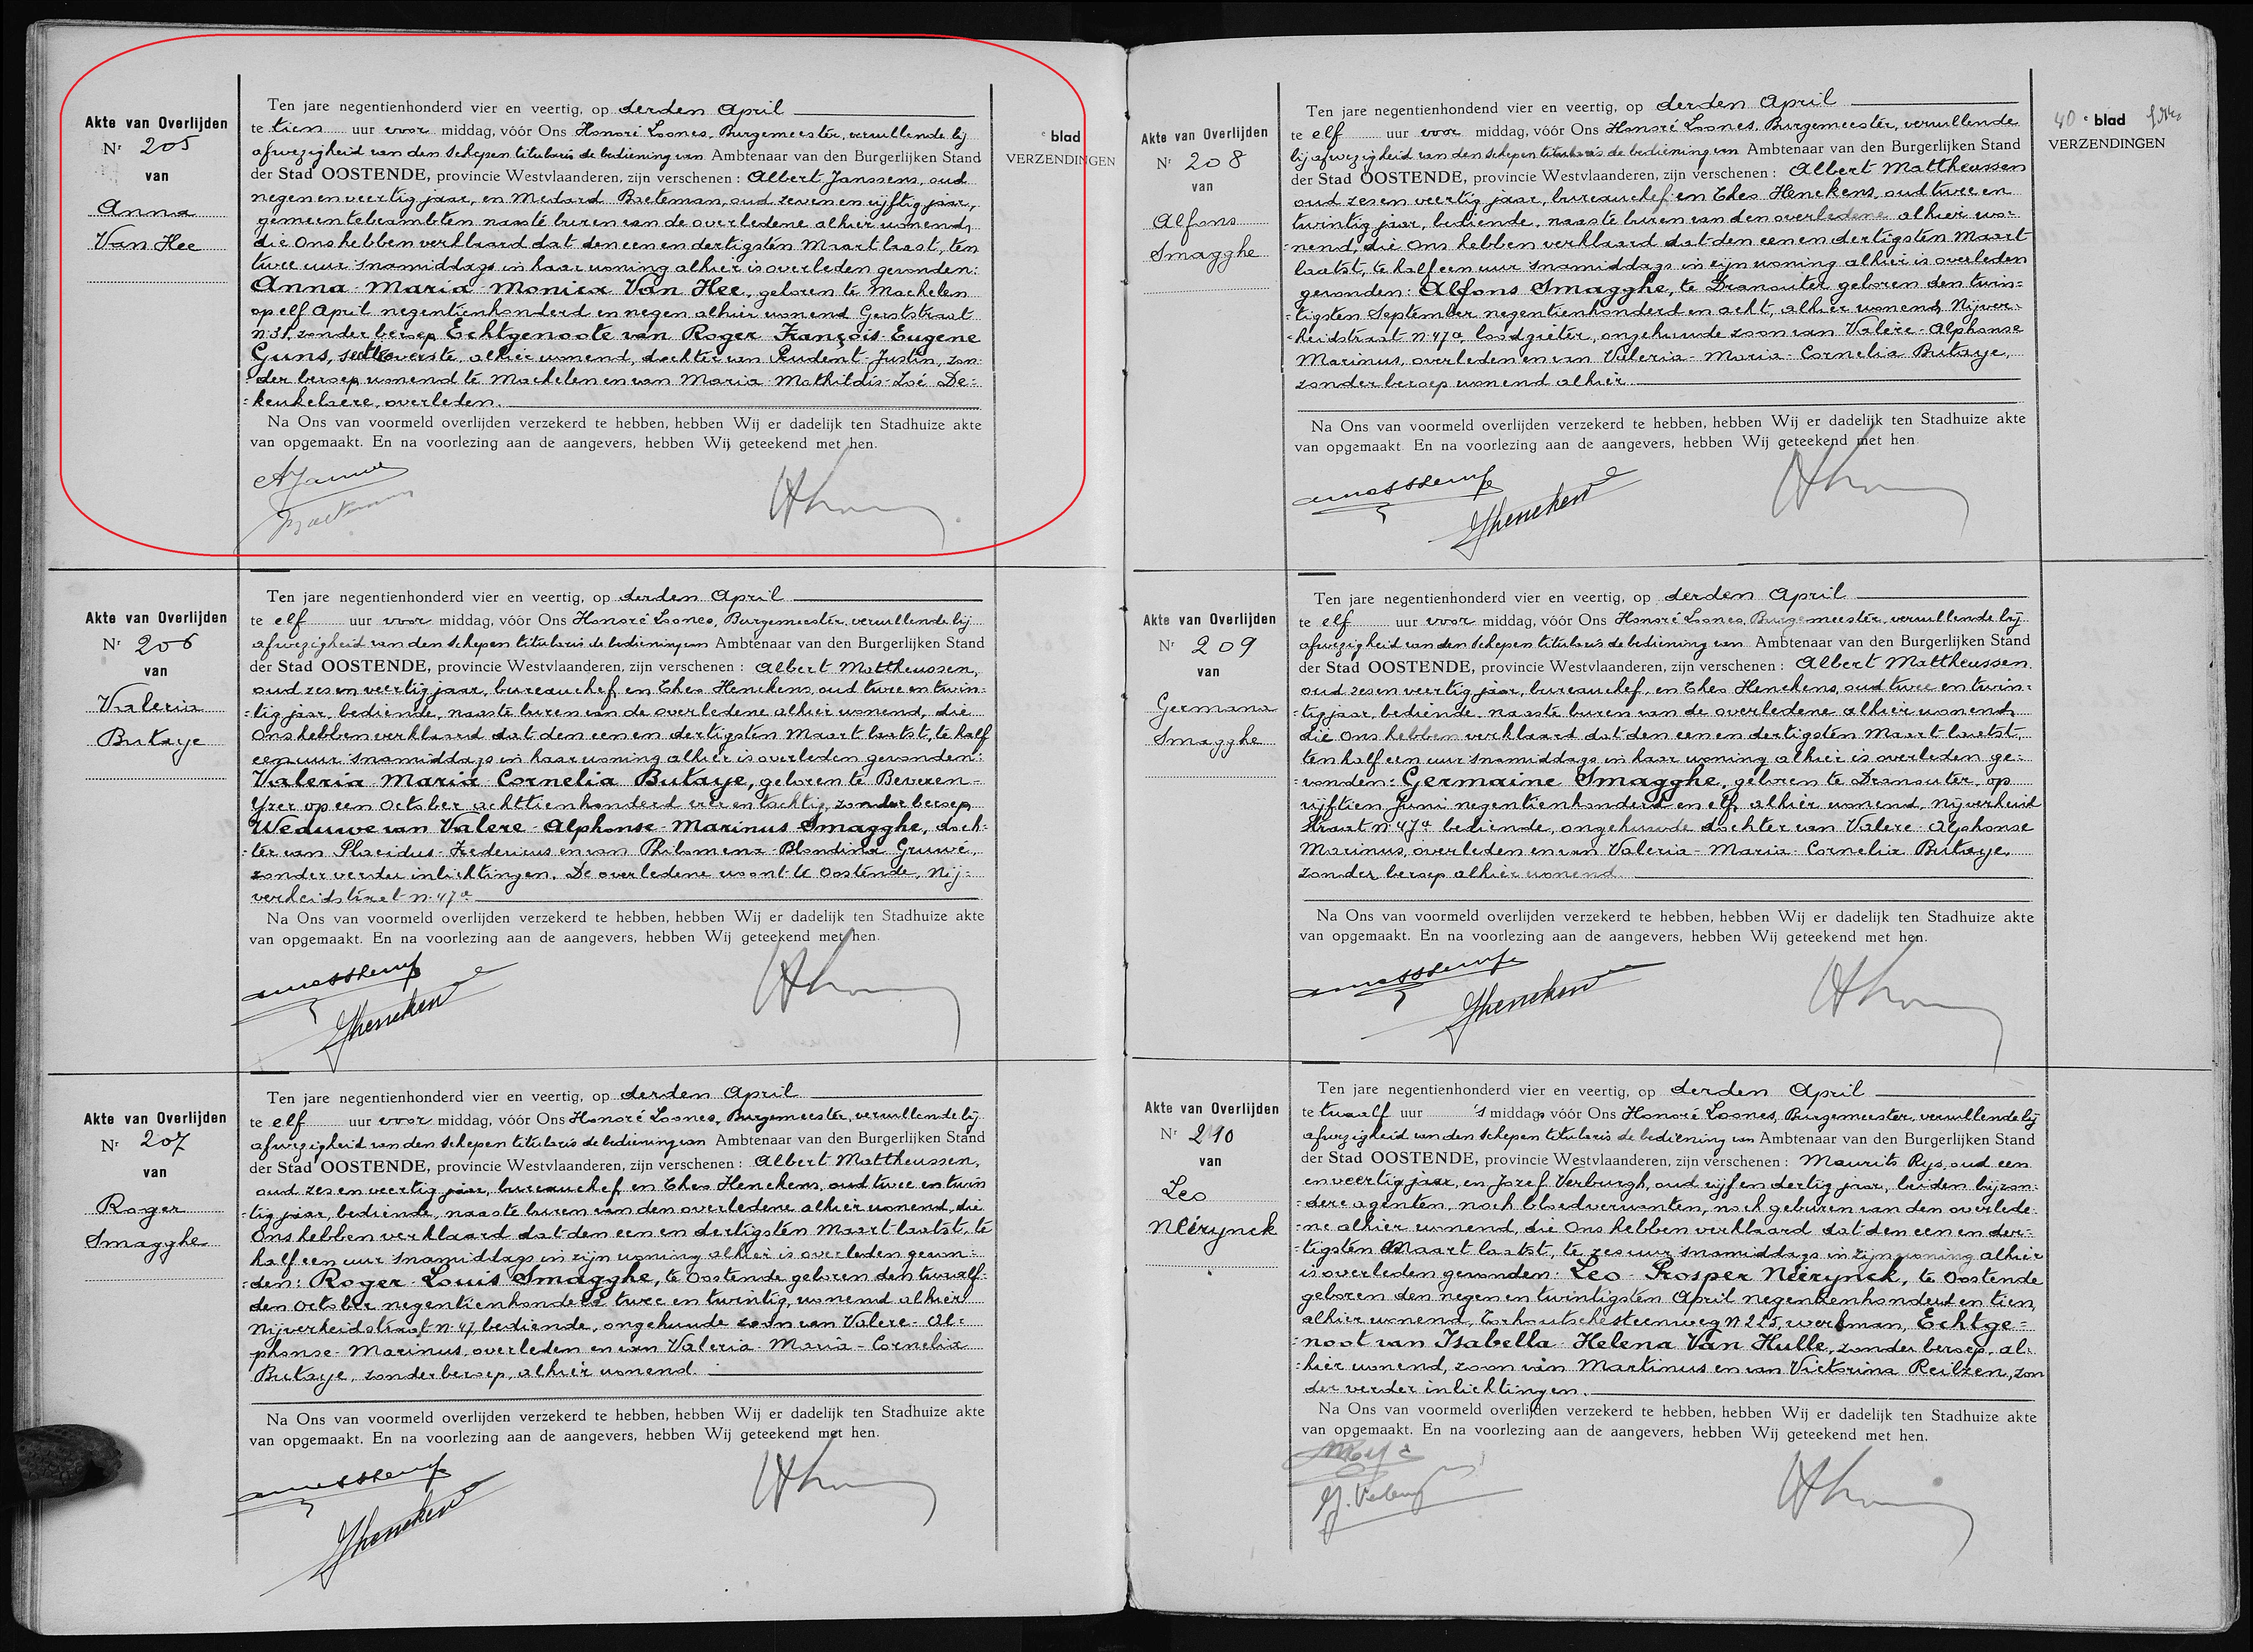 Akte van Overlijden
Nr 205
van
Anna
Van Hee
Ten jare negentienhonderd vier en veertig, op derden April
te tien uur voor middag, vóór Ons Honoré Loones, Burgemeester, vervullende bij
afwezigheid van den schepen titularis de bediening van Ambtenaar van den Burgerlijken Stand
der Stad OOSTENDE, provincie Westvlaanderen, zijn verschenen : Albert Janssens, oud
negen en veertig jaar, en Medard Baeteman, oud zeven en vijftig jaar,
gemeentebeambten naaste buren van de overledene alhier wonend,
die Ons hebben verklaard dat den een en dertigsten Maart laast, ten
twee uur 's namiddags in haar woning alhier is overleden gevonden:
Anna Maria Monica Van Hee, geboren te Machelen
op elf April negentienhonderd en negen alhier wonend Gerststraat
n. 31, zonder beroep Echtgenoote van Roger François Eugene
Guns, overste, alhier wonend, dochter van Prudent Justin, zon
der beroep wonend te Machelen en van Maria Mathildis Zoé De=
=keukelaere, overleden.
Na Ons van voormeld overlijden verzekerd te hebben, hebben Wij er dadelijk ten Stadhuize akte
van opgemaakt. En na voorlezing aan de aangevers, hebben Wij geteekend met hen.
AJanssens
Baeteman
e blad
VERZENDINGEN
Akte van Overlijden
Nr 206
van
Valeria
Butaye
Ten jare negentienhonderd vier en veertig, op derden April
te elf uur voor middag, vóór Ons Honoré Loones, Burgemeester, vervullende bij
afwezigheid van den schepen titularis de bediening van Ambtenaar van den Burgerlijken Stand
der Stad OOSTENDE, provincie Westvlaanderen, zijn verschenen : Albert Mattheussen,
oud zes en veertig jaar, bureauchef, en Theo Henekens, oud twee en twin=
=tig jaar, bediende, naaste buren van de overledene alhier wonend, die
Ons hebben verklaard dat den een en dertigsten Maart laatst, te half
een uur 's namiddags in haar woning alhier is overleden gevonden:
Valeria Maria Cornelia Butaye, geboren te Beveren-
Yzer op een October achttienhonderd en tachtig, zonder beroep,
Weduwe van Valere Alphonse Marinus Smagghe, doch=
=ter van Placidus Federicus en van Philomena Blondina Gruwé,
zonder verder inlichtingen. De overledene woont te Oostende, Nij=
verheidstraat n. 47a
Na Ons van voormeld overlijden verzekerd te hebben, hebben Wij er dadelijk ten Stadhuize akte
van opgemaakt. En na voorlezing aan de aangevers, hebben Wij geteekend met hen.
Henekens
Akte van Overlijden
Nr 207
van
Roger
Smagghe
Ten jare negentienhonderd vier en veertig, op derden April
te elf uur voor middag, vóór Ons Honoré Loones, Burgemeester, vervullende bij
afwezigheid van den schepen titularis de bediening van Ambtenaar van den Burgerlijken Stand
der Stad OOSTENDE, provincie Westvlaanderen, zijn verschenen : Albert Mattheussen,
oud zes en veertig jaar, bureauchef, en Theo Henekens, oud twee en twin
=tig jaar, bediende, naaste buren van den overledene alhier wonend, die
Ons hebben verklaard dat den een en dertigsten Maart laatst, te
half een uur 's namiddags in zijn woning alhier is overleden gevon=
=den: Roger Louis Smagghe, te Oostende geboren den twaalf=
den October negentienhonderd twee en twintig, wonend alhier
Nijverheidstraat n. 47 bediende, ongehuwde zoon van Valere - Al=
phonse - Marinus, overleden en van Valeria - Maria - Cornelia
Butaye, zonder beroep, alhier wonend.
Na Ons van voormeld overlijden verzekerd te hebben, hebben Wij er dadelijk ten Stadhuize akte
van opgemaakt. En na voorlezing aan de aangevers, hebben Wij geteekend met hen.
Henekens
Akte van Overlijden
Nr 208
van
Alfons
Smagghe
Ten jare negentienhonderd vier en veertig, op derden April
te elf uur voor middag, vóór Ons Honoré Loones, Burgemeester, vervullende
bij afwezigheid van den schepen titularis de bediening van Ambtenaar van den Burgerlijken Stand
der Stad OOSTENDE, provincie Westvlaanderen, zijn verschenen : Albert Mattheussen
oud zes en veertig jaar, bureauchef en Theo Henekens, oud twee en
twintig jaar, bediende, naaste buren van den overledene alhier wo=
=nend, die Ons hebben verklaard dat den een en dertigsten Maart
laatst, te half een uur 's namiddags in zijn woning alhier is overleden
gevonden: Alfons Smagghe, te Dranouter geboren den twin=
=tigsten September negentienhonderd en acht, alhier wonend, Nijver=
=heidstraat n. 47a, loodgieter, ongehuwde zoon van Valère - Alphonse
Marinus, overleden en van Valeria - Maria - Cornelia Butaye,
zonder beroep wonend alhier.
Na Ons van voormeld overlijden verzekerd te hebben, hebben Wij er dadelijk ten Stadhuize akte
van opgemaakt. En na voorlezing aan de aangevers, hebben Wij geteekend met hen.
Henekens
40 e blad
VERZENDINGEN
Akte van Overlijden
Nr 209
van
Germana
Smagghe
Ten jare negentienhonderd vier en veertig, op derden April
te elf uur voor middag, vóór Ons Honoré Loones, Burgemeester, vervullende bij
afwezigheid van den schepen titularis de bediening van Ambtenaar van den Burgerlijken Stand
der Stad OOSTENDE, provincie Westvlaanderen, zijn verschenen : Albert Mattheussen
oud zes en veertig jaar, bureauchef, en Theo Henekens, oud twee en twin=
=tig jaar, bediende, naaste buren van de overledene alhier wonend,
die Ons hebben verklaard dat den een en dertigsten Maart laatst,
ten half een uur 's namiddags in haar woning alhier is overleden ge=
=vonden: Germaine Smagghe, geboren te Dranouter, op
vijftien Juni negentienhonderd en elf, alhier wonend, Nijverheid
straat n. 47a bediende, ongehuwde dochter van Valere - Alphonse
Marinus, overleden en van Valeria - Maria - Cornelia Butaye,
zonder beroep alhier wonend
Na Ons van voormeld overlijden verzekerd te hebben, hebben Wij er dadelijk ten Stadhuize akte
van opgemaakt. En na voorlezing aan de aangevers, hebben Wij geteekend met hen.
Henekens
Akte van Overlijden
Nr 210
van
Leo
Neirynck
Ten jare negentienhonderd vier en veertig, op derden April
te twaalf uur 's middags vóór Ons Honoré Loones, Burgemeester, vervullende bij
afwezigheid van den schepen titularis de bediening van Ambtenaar van den Burgerlijken Stand
der Stad OOSTENDE, provincie Westvlaanderen, zijn verschenen : Maurits Rys, oud een
en veertig jaar, en Jozef Verburgh, oud vijf en dertig jaar, beiden bijzon=
=dere agenten, noch bloedverwanten, noch geburen van den overlede=
=ne alhier wonend, die Ons hebben verklaard dat den een en der=
=tigsten Maart laatst, te zes uur 's namiddags in zijn woning alhier
is overleden gevonden: Leo Prosper Neirynck, te Oostende
geboren den negen en twintigsten April negentienhonderd en tien,
alhier wonend, Torhoutschesteenweg n. 225, werkman, Echtge=
=noot van Isabella Helena Van Hulle, zonder beroep, al=
=hier wonend, zoon van Martinus en van Victorina Reilzen, zon
der verder inlichtingen.
Na Ons van voormeld overlijden verzekerd te hebben, hebben Wij er dadelijk ten Stadhuize akte
van opgemaakt. En na voorlezing aan de aangevers, hebben Wij geteekend met hen.
MRys
J. Verburgh